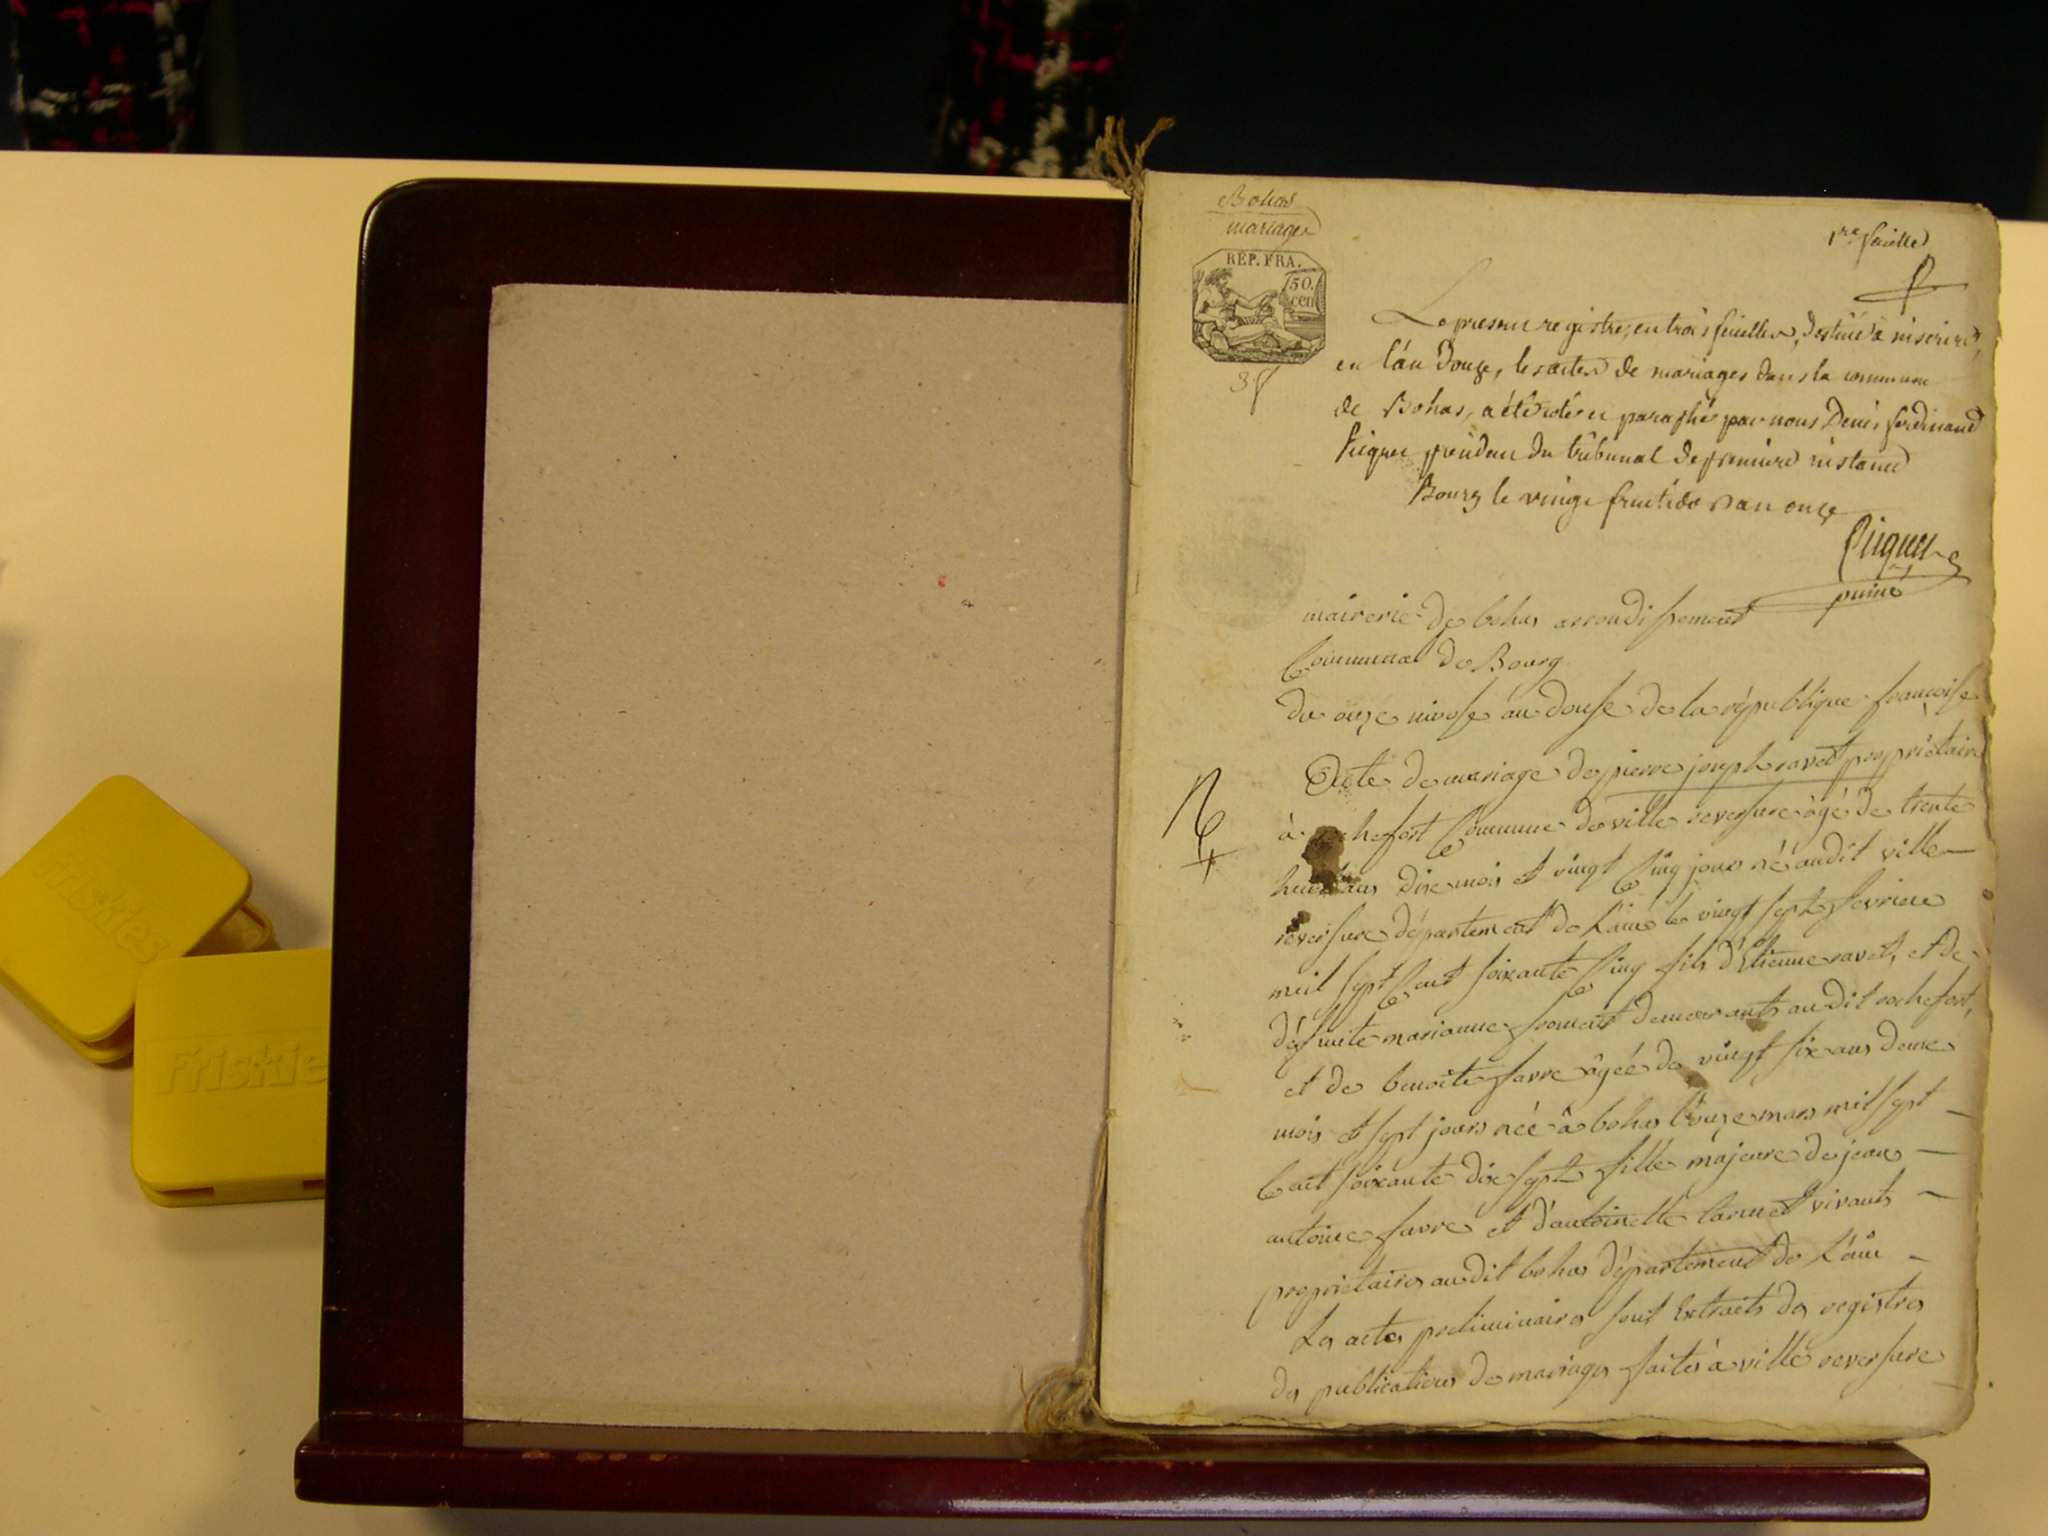 Bohas
mariages
REP. FRA.
50.
cen
38
1re feuille
Le present registre, en trois feuilles, destiné à inscrire,
en l'an Douze, les actes de mariages dans la commune
de Bohas, a été coté et paraphé par nous Denis ferdinand
Picquet président du tribunal de premiere instance
Bourg le vingt fructidor an onze
Picquet
puiné
mairerie de bohas arrondissement
Communal de Bourg
du onze nivose an douse de la république françoise
Acte de mariage de pierre joseph ravet propriétaire
à chefort Commune de ville reversure âgé de trente
huit ans dix mois et vingt Cinq jours né audit ville
reversure département de L'ain le vingt sept fevrier
mil sept Cent soixante Cinq fils d'Etienne ravet, et de
défunte marianne froment demeurants audit rochefort,
et de benoite favre âgée de vingt six ans deux
mois et sept jours née à bohas l'onze mars mil sept
Cent soixante dix sept fille majeure de jean
antoine favre et d'antoinette larnet vivants
propriétaires audit bohas département de L'ain
Les actes preliminaires sont Extraits des registres
des publications de mariages faites à ville reversure
Friskies
Friskie